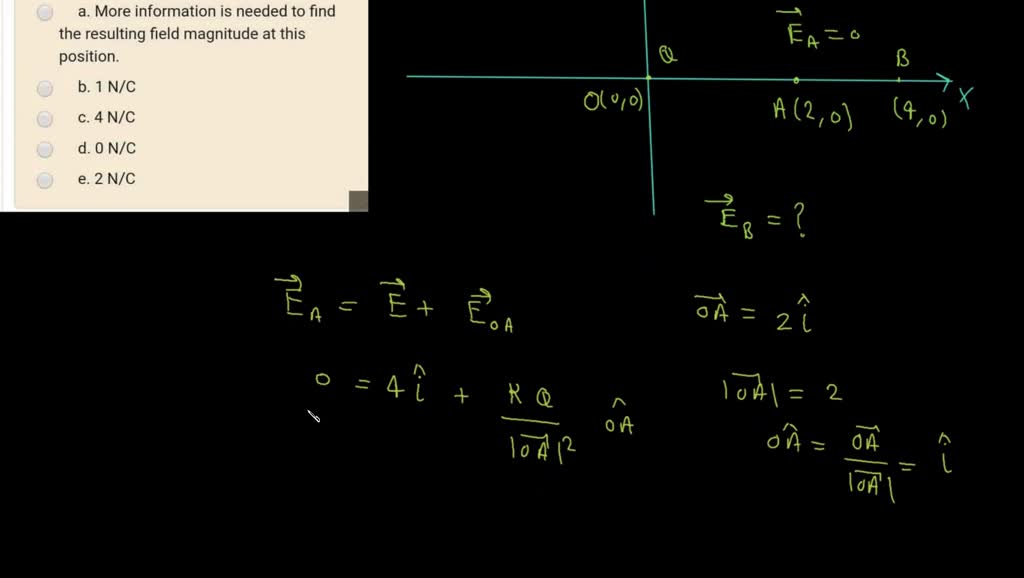 a. More information is needed to find
the resulting field magnitude at this
position.
b. 1 N/C
c. 4 N/C
d. 0 N/C
e. 2 N/C
E⃗_A = 0
Q
B
O(0,0)
A(2,0)
(4,0)
X
E⃗_B = ?
E⃗_A = E⃗ + E⃗_OA
OA⃗ = 2 î
0 = 4 î + KQ / |OA⃗|² OÂ
|OA⃗| = 2
OÂ = OA⃗ / |OA⃗| = î